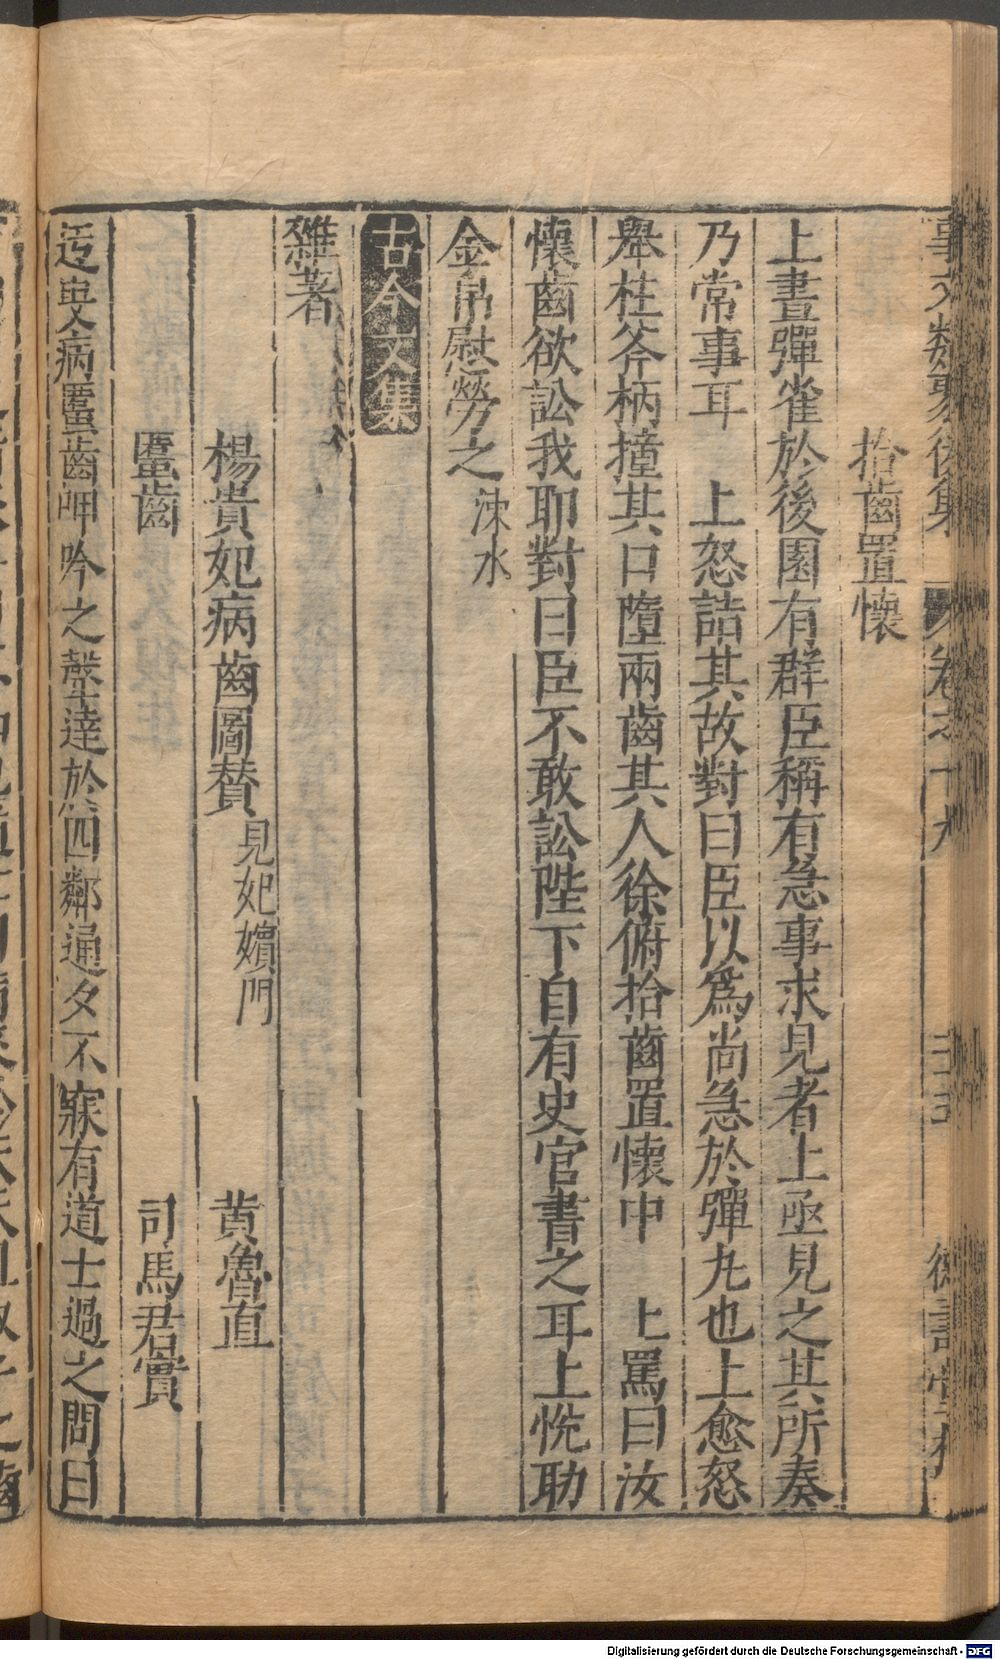 事文類聚後集 卷之十九
拾齒置懷
上晝彈雀於後園有群臣稱有急事求見者上亟見之其所奏
乃常事耳 上怒詰其故對曰臣以爲尚急於彈九也上愈怒
舉柱斧柄撞其口墮兩齒其人徐俯拾齒置懷中 上罵曰汝
懷齒欲訟我耶對曰臣不敢訟陛下自有史官書之耳上恱助
金帛慰勞之 涑水
古今文集
雜著
楊貴妃病齒圖贊 見妃嬪門 黄魯直
䘌齒 司馬君實
迃叟病䘌齒呻吟之聲達於四鄰通夕不寐有道士過之問曰
Digitalisierung gefördert durch die Deutsche Forschungsgemeinschaft - DFG